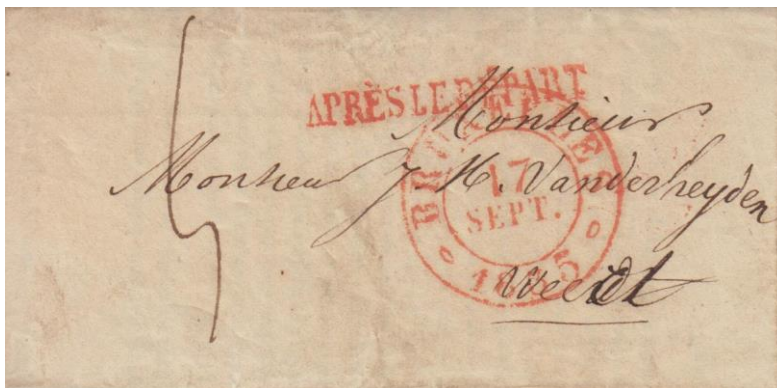 APRÈS LE DÉPART
Monsieur
Monsieur J. H. Vanderheyden
BRUXELLES
17
SEPT.
Weert